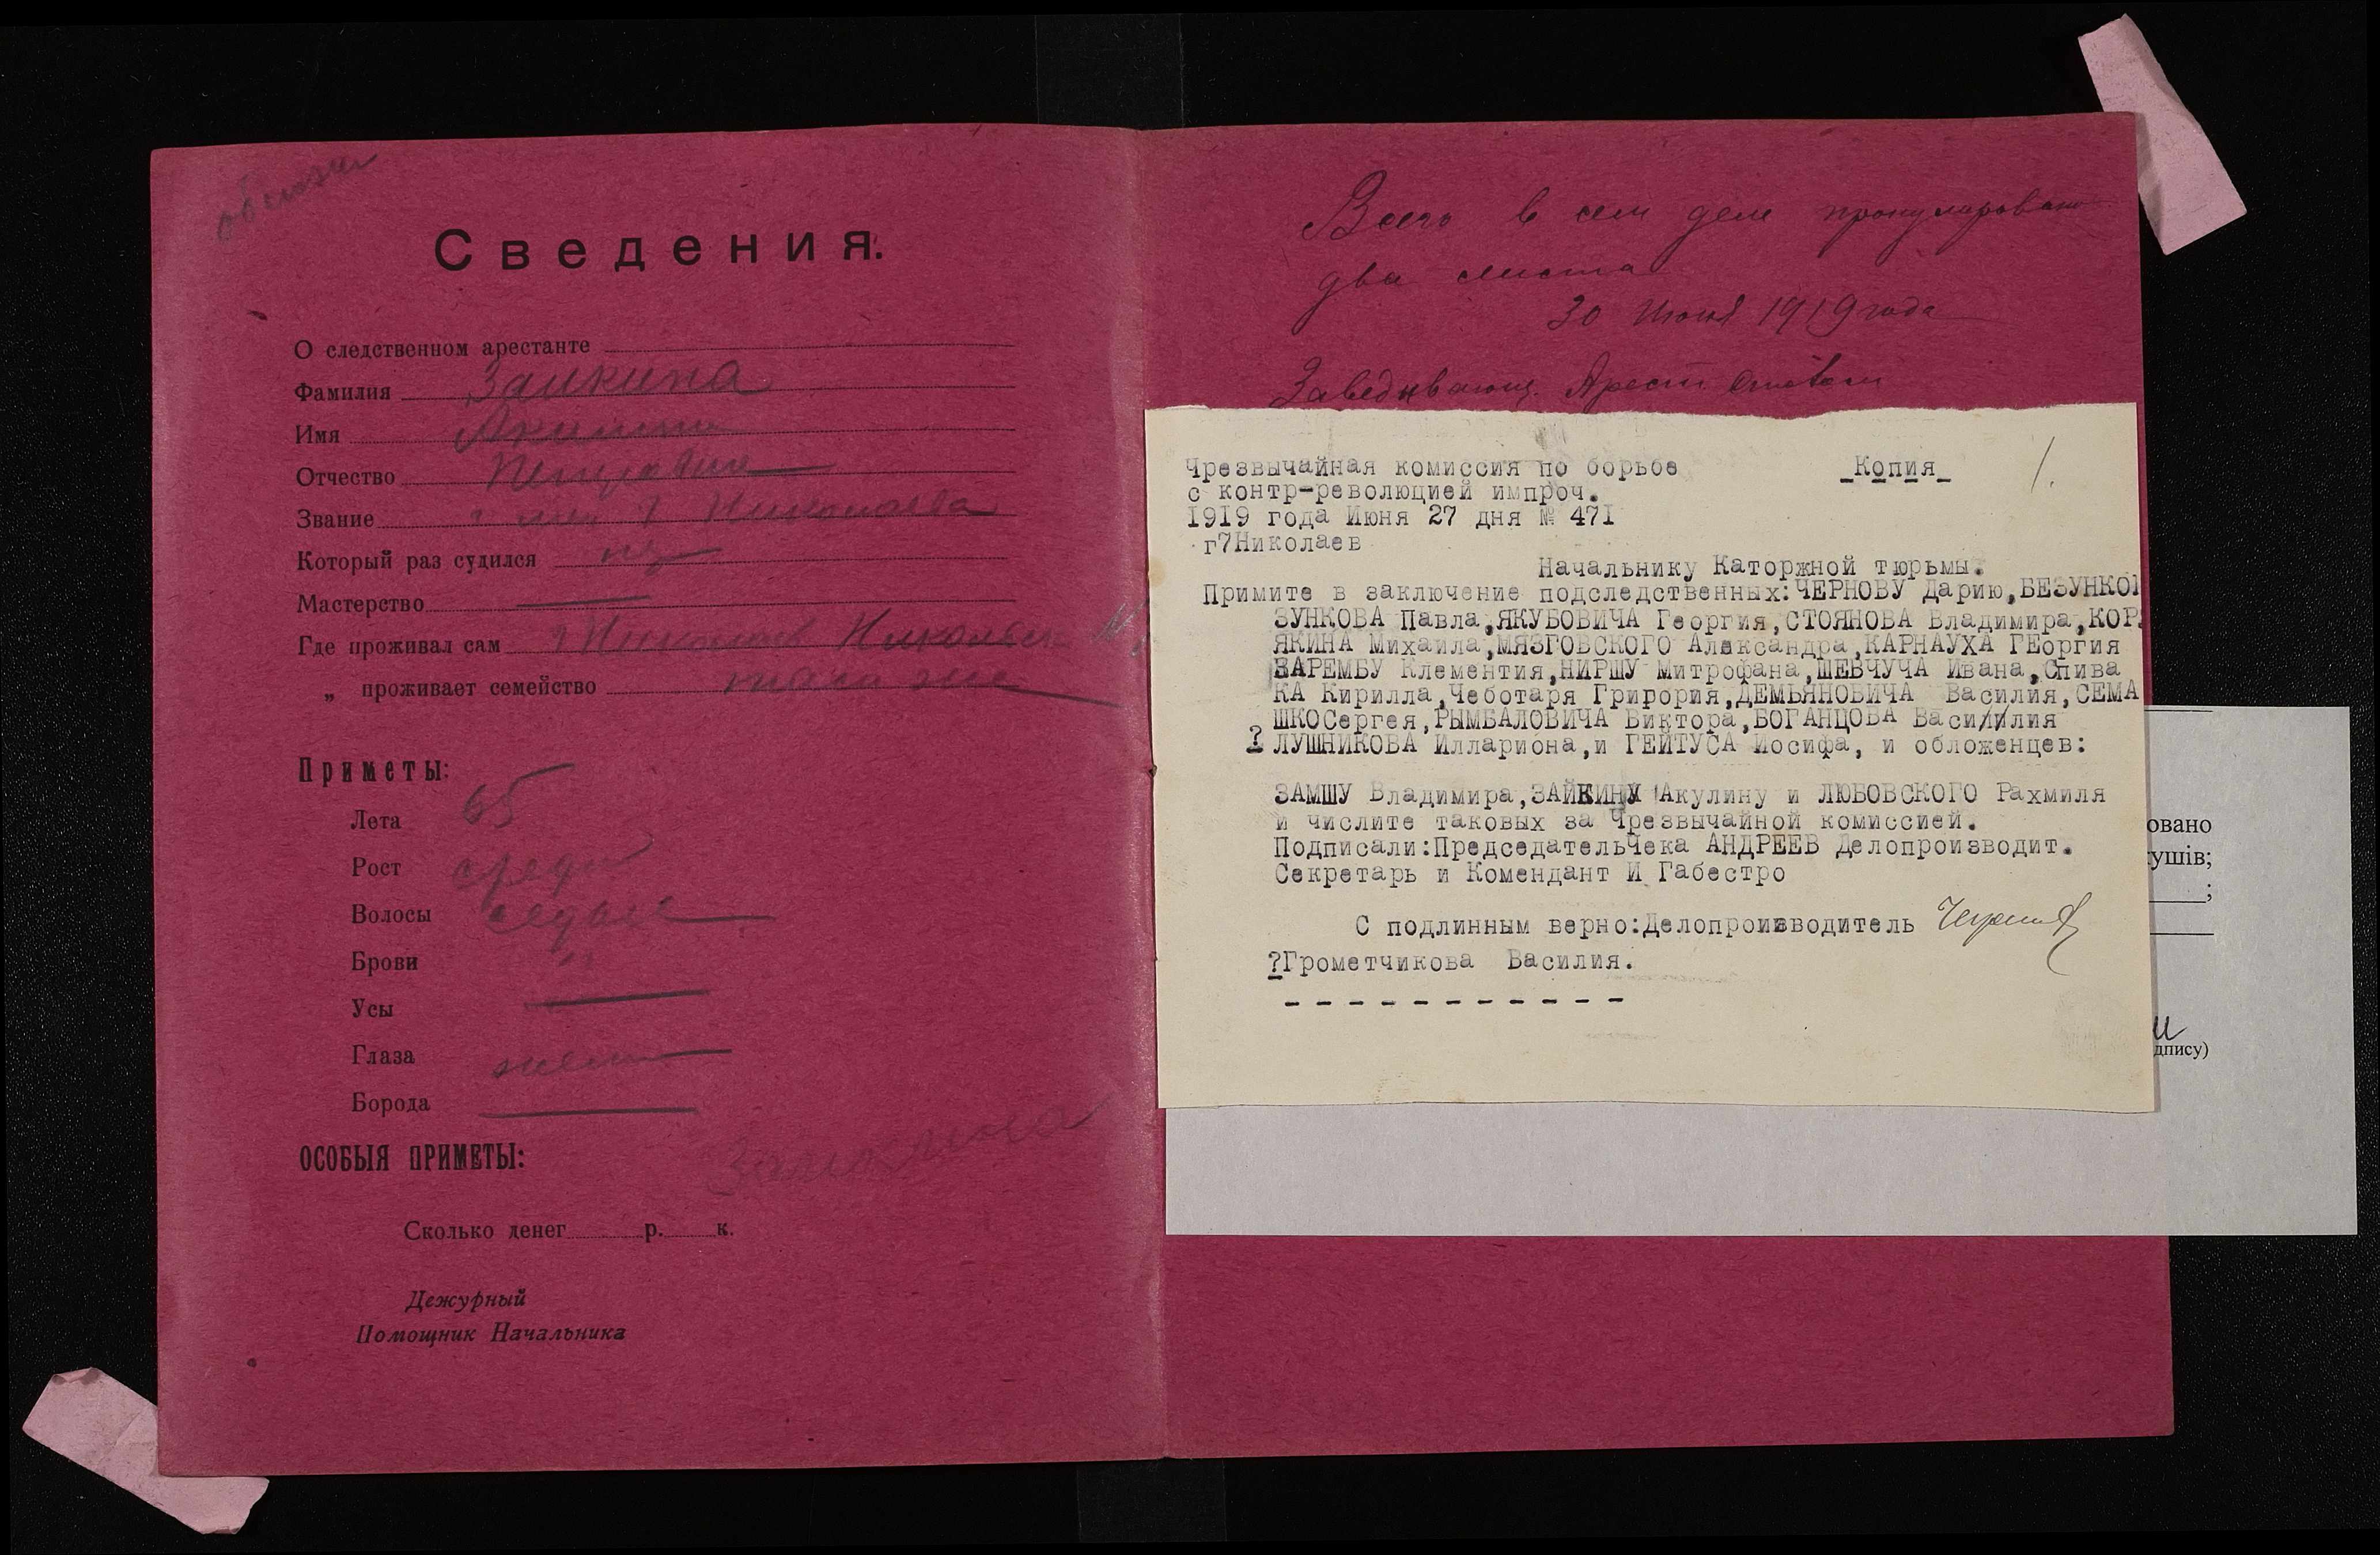 Сведения.
О следственном арестанте
Фамилия Заикина
Имя Акулина
Отчество Петровна
Звание г Николаева
Который раз судился
Мастерство
Где проживал сам г Николаев Никольск
„ проживает семейство тоже
Приметы:
Лета 65
Рост средн
Волосы седые
Брови "
Усы
Глаза
Борода
ОСОБЫЯ ПРИМЕТЫ:
Сколько денег р. к.
Дежурный
Помощник Начальника
Всего в сем деле пронумеровано
два листа
30 Июня 1919 года
Заведывающ. Арест
Чрезвычайная комиссия по борьбе
с контр-революцией импроч.
1919 года Июня 27 дня № 471
г7Николаев
Копия
1.
Начальнику Каторжной тюрьмы.
Примите в заключение подследственных:ЧЕРНОВУ Дарию,БЕЗУНКО
ЗУНКОВА Павла,ЯКУБОВИЧА Георгия,СТОЯНОВА Владимира,КОР
ЯКИНА Михаила,МЯЗГОВСКОГО Александра,КАРНАУХА ГЕоргия
ЗАРЕМБУ Клементия,НИРШУ Митрофана,ШЕВЧУЧА Ивана,Спива
КА Кирилла,Чеботаря Григория,ДЕМЬЯНОВИЧА Василия,СЕМА
ШКОСергея,РЫМБАЛОВИЧА Виктора,БОГАНЦОВА Васи//илия
? ЛУШНИКОВА Иллариона,и ГЕЙТУСА Иосифа, и обложенцев:
ЗАМШУ Владимира,ЗАЙКИНУ Акулину и ЛЮБОВСКОГО Рахмиля
и числите таковых за Чрезвычайной комиссией.
Подписали:ПредседательЧека АНДРЕЕВ Делопроизводит.
Секретарь и Комендант И Габестро
С подлинным верно:Делопроизводитель
?Грометчикова Василия.
- - - - - - - - - - - -
овано
ушів;
;
дпису)